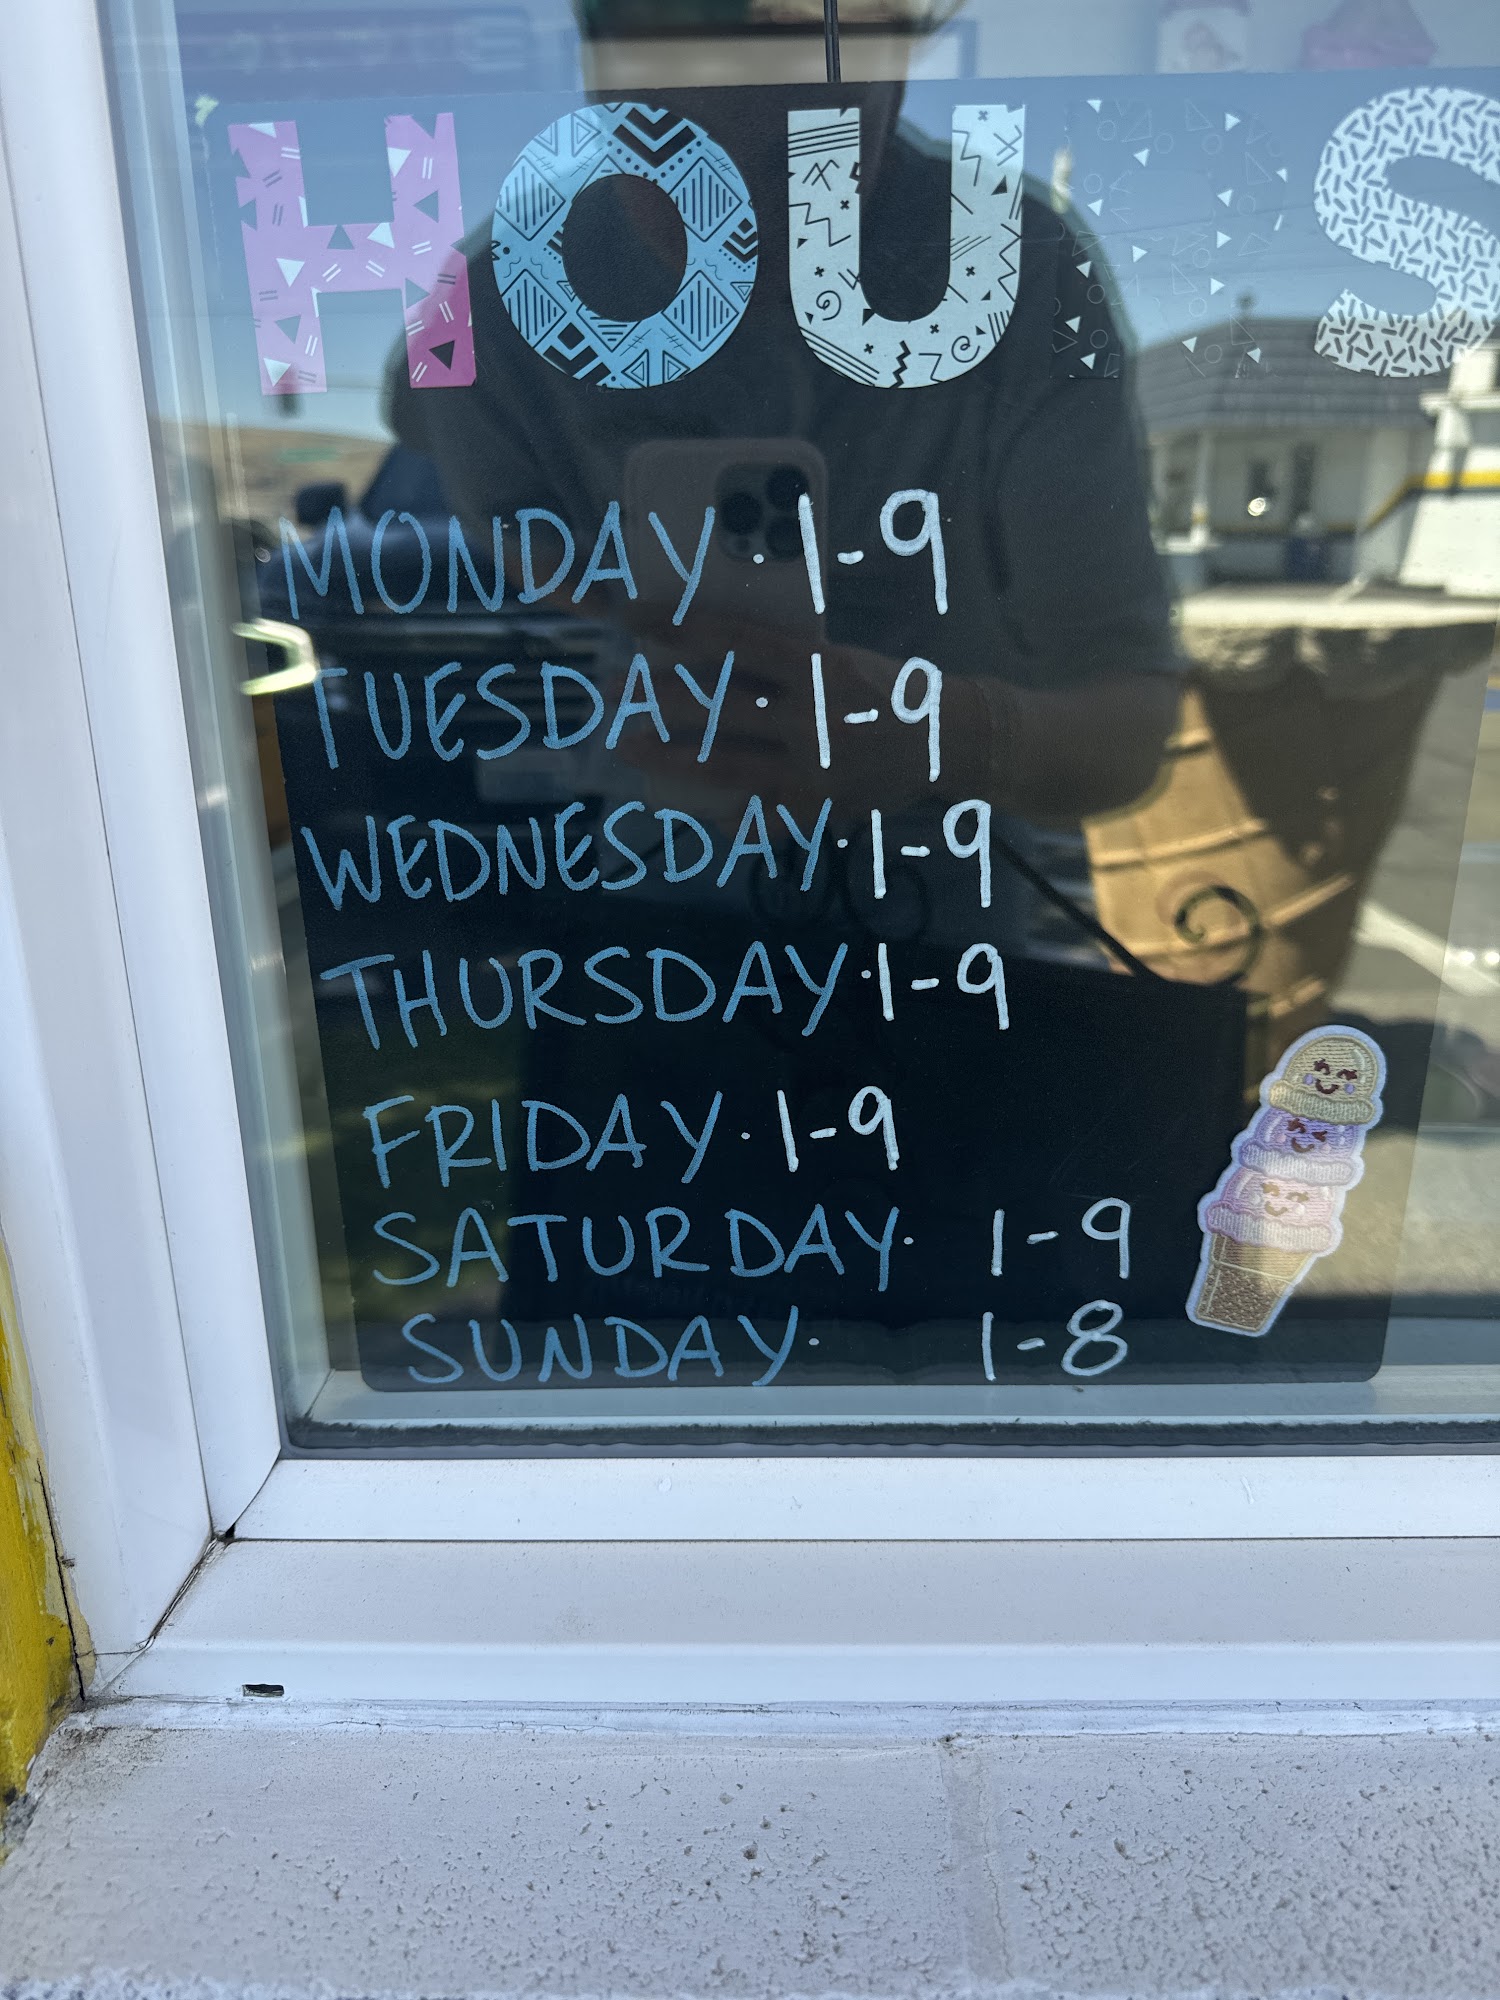 HOURS
MONDAY · 1-9
TUESDAY · 1-9
WEDNESDAY · 1-9
THURSDAY · 1-9
FRIDAY · 1-9
SATURDAY · 1-9
SUNDAY · 1-8